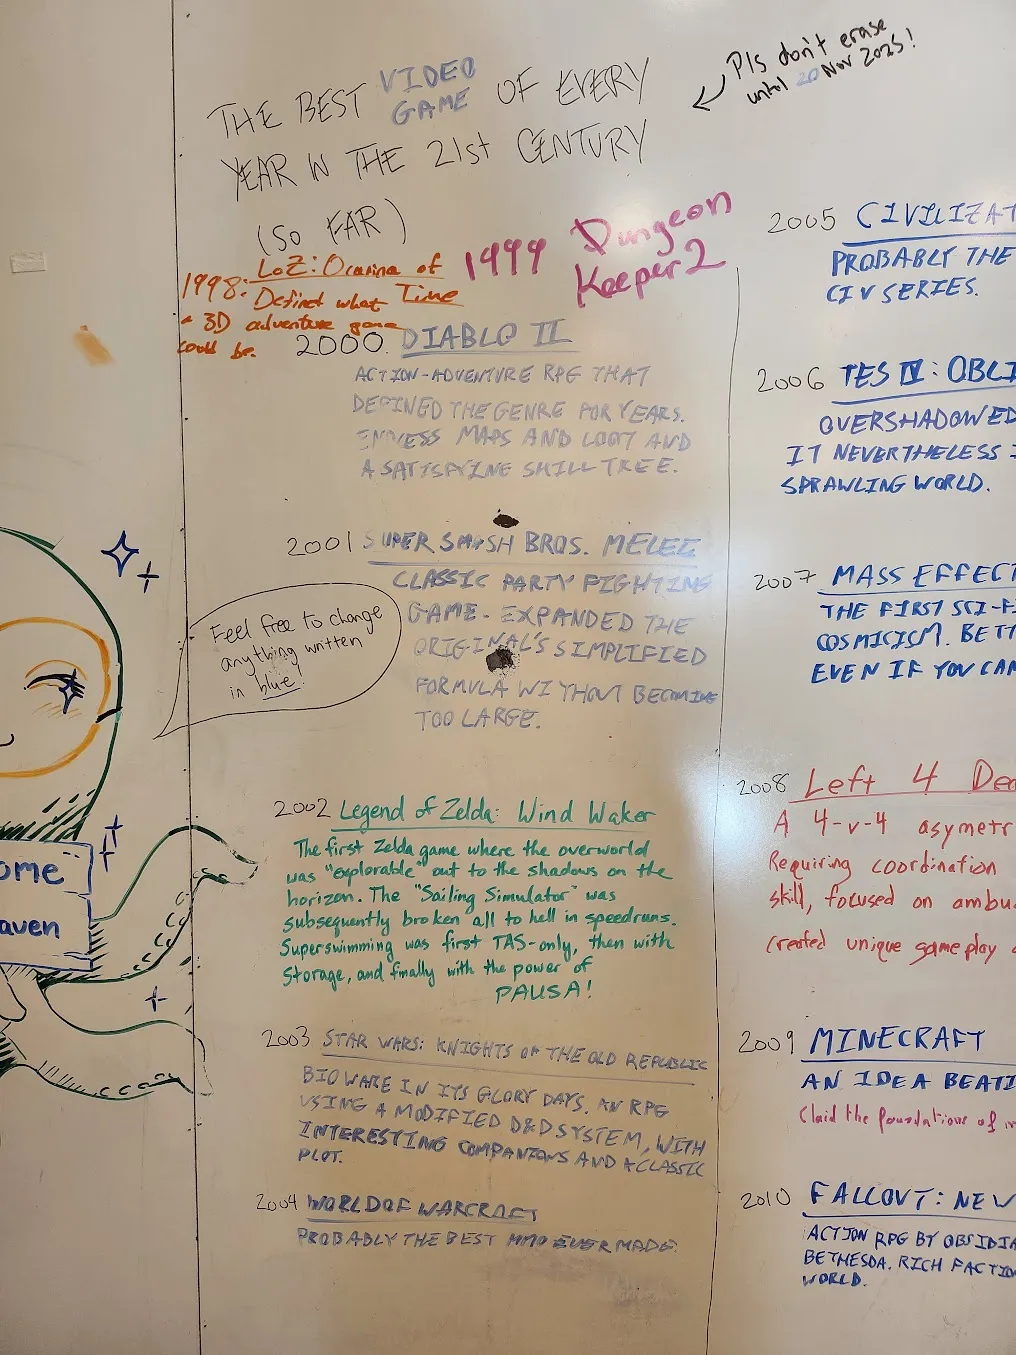 THE BEST VIDEO GAME OF EVERY
YEAR IN THE 21st CENTURY
(SO FAR)
Pls don't erase
until 20 Nov 2025!
1998: LoZ: Ocarina of
Time
Defined what
a 3D adventure game
could be.
1999 Dungeon
Keeper 2
2000. DIABLO II
ACTION-ADVENTURE RPG THAT
DEFINED THE GENRE FOR YEARS.
ENDLESS MAPS AND LOOT AND
A SATISFYING SKILL TREE.
2001 SUPER SMASH BROS. MELEE
CLASSIC PARTY FIGHTING
GAME. EXPANDED THE
ORIGINAL'S SIMPLIFIED
FORMULA WITHOUT BECOMING
TOO LARGE.
Feel free to change
anything written
in blue!
2002 Legend of Zelda: Wind Waker
The first Zelda game where the overworld
was "explorable" out to the shadows on the
horizon. The "Sailing Simulator" was
subsequently broken all to hell in speedruns.
Superswimming was first TAS-only, then with
Storage, and finally with the power of
PAUSA!
2003 STAR WARS: KNIGHTS OF THE OLD REPUBLIC
BIOWARE IN ITS GLORY DAYS. AN RPG
USING A MODIFIED D&D SYSTEM, WITH
INTERESTING COMPANIONS AND A CLASSIC
PLOT.
2004 WORLD OF WARCRAFT
PROBABLY THE BEST MMO EVER MADE.
ome
aven
2005 CIVILIZAT
PROBABLY THE
CIV SERIES.
2006 TES IV: OBLI
OVERSHADOWED
IT NEVERTHELESS
SPRAWLING WORLD.
2007 MASS EFFECT
THE FIRST SCI-F
COSMICISM. BETT
EVEN IF YOU CAN
2008 Left 4 Dea
A 4-v-4 asymetr
Requiring coordination
skill, focused on ambu
created unique gameplay
2009 MINECRAFT
AN IDEA BEATI
(laid the foundations of
2010 FALLOUT: NEW
ACTION RPG BY OBSIDIA
BETHESDA. RICH FACTIO
WORLD.